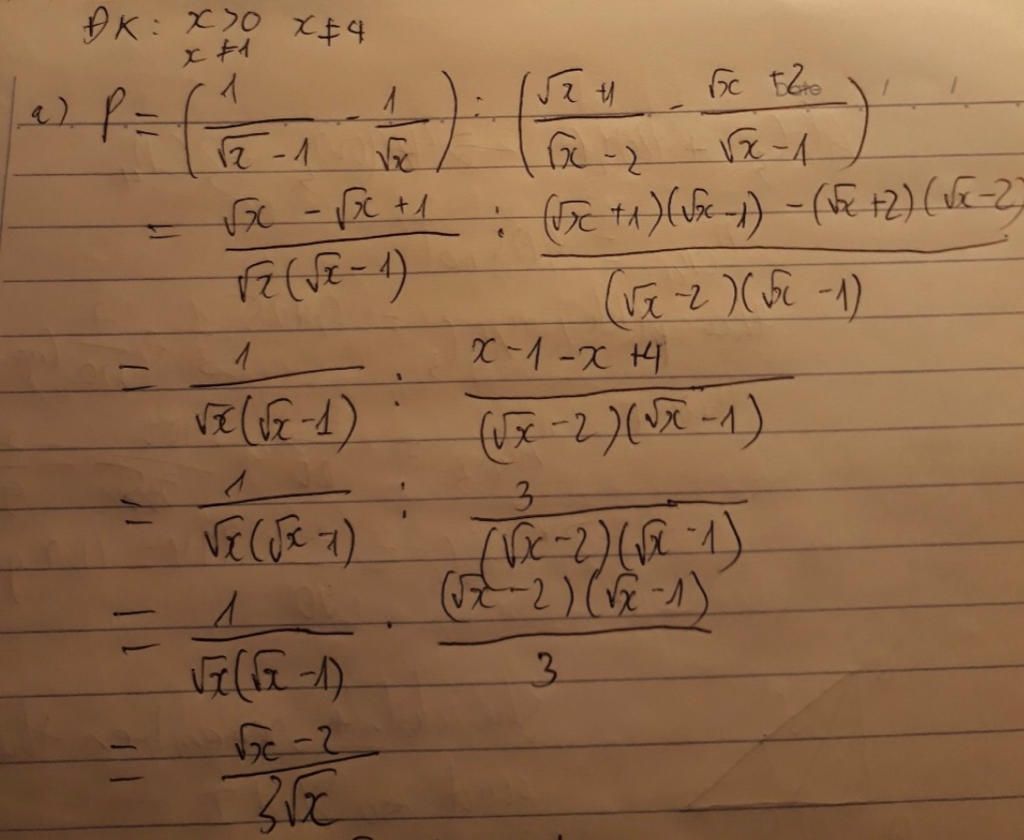 ĐK: x>0 x≠4
x≠1
a) P = (1/(√x - 1) - 1/√x) : ((√x + 1)/(√x - 2) - (√x + 2)/(√x - 1))
= (√x - √x + 1)/(√x(√x - 1)) : ((√x + 1)(√x - 1) - (√x + 2)(√x - 2))/((√x - 2)(√x - 1))
= 1/(√x(√x - 1)) : (x - 1 - x + 4)/((√x - 2)(√x - 1))
= 1/(√x(√x - 1)) : 3/((√x - 2)(√x - 1))
= 1/(√x(√x - 1)) . ((√x - 2)(√x - 1))/3
= (√x - 2)/(3√x)